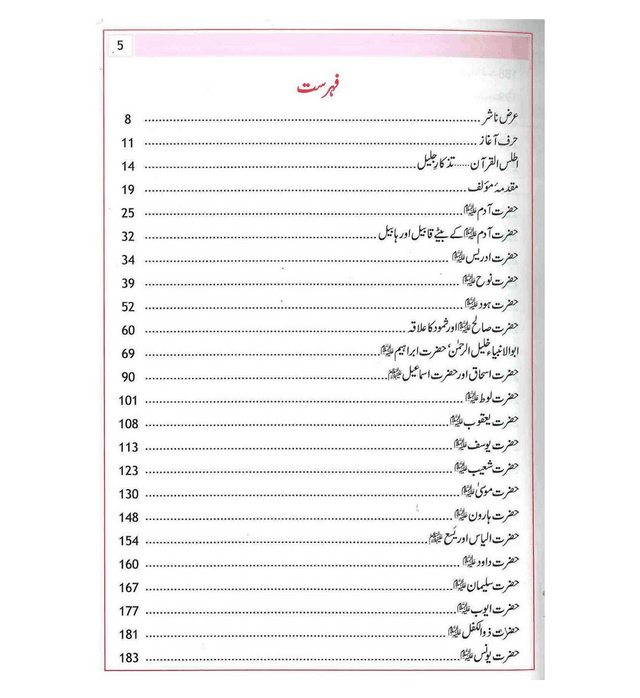 5
فہرست
عرض ناشر ........ 8
حرف آغاز ........ 11
اطلس القرآن......تذکار جلیل ........ 14
مقدمۂ مؤلف ........ 19
حضرت آدم علیہ السلام ........ 25
حضرت آدم علیہ السلام کے بیٹے قابیل اور ہابیل ........ 32
حضرت ادریس علیہ السلام ........ 34
حضرت نوح علیہ السلام ........ 39
حضرت ہود علیہ السلام ........ 52
حضرت صالح علیہ السلام اور ثمود کا علاقہ ........ 60
ابوالانبیاء خلیل الرحمٰن حضرت ابراہیم علیہ السلام ........ 69
حضرت اسحاق اور حضرت اسماعیل علیہما السلام ........ 90
حضرت لوط علیہ السلام ........ 101
حضرت یعقوب علیہ السلام ........ 108
حضرت یوسف علیہ السلام ........ 113
حضرت شعیب علیہ السلام ........ 123
حضرت موسیٰ علیہ السلام ........ 130
حضرت ہارون علیہ السلام ........ 148
حضرت الیاس اور یسع علیہما السلام ........ 154
حضرت داود علیہ السلام ........ 160
حضرت سلیمان علیہ السلام ........ 167
حضرت ایوب علیہ السلام ........ 177
حضرت ذوالکفل علیہ السلام ........ 181
حضرت یونس علیہ السلام ........ 183